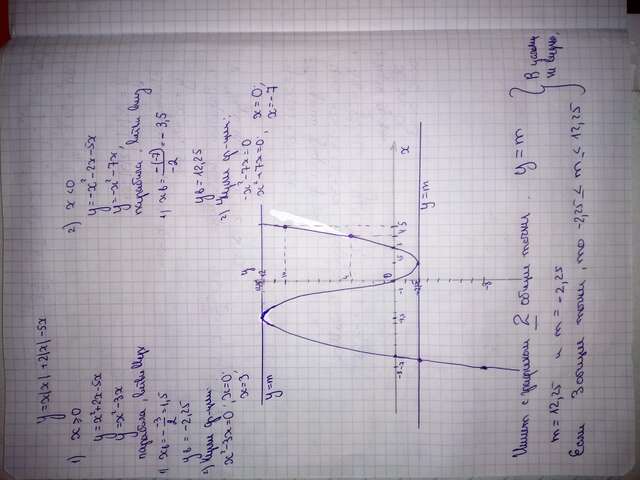 y=x|x|+2|x|-5x
1) x≥0
y=x²+2x-5x
y=x²-3x
парабола, ветви вверх
1) xв=-\frac{-3}{2}=1,5
yв=-2,25
2) Нули ф-ции:
x²-3x=0; x=0;
x=3
2) x<0
y=-x²-2x-5x
y=-x²-7x;
парабола, ветви вниз,
1) xв=\frac{-(-7)}{-2}=-3,5
yв=12,25
2) Нули ф-ции:
-x²-7x=0
x²+7x=0; x=0;
x=-7
y
y=m
0
x
y=m
Имеет с графиком 2 общие точки y=m
m=12,25 и m=-2,25
Если 3 общие точки, то -2,25 < m < 12,25